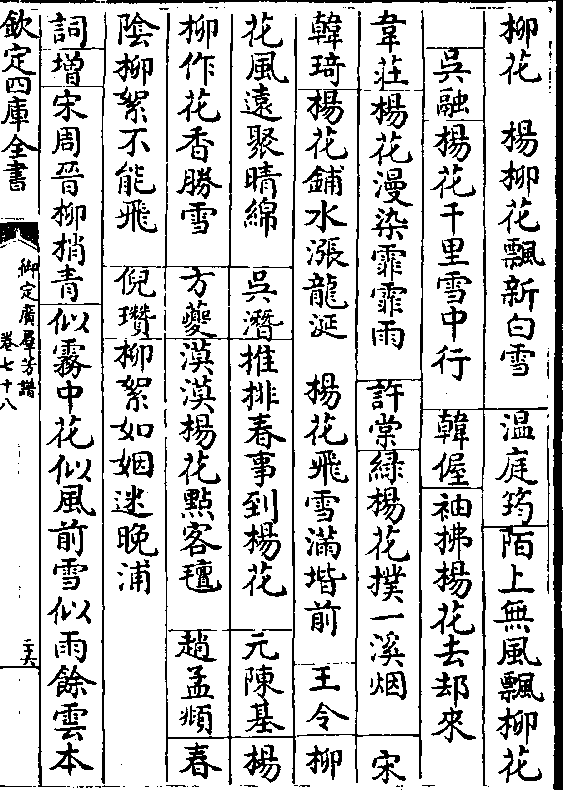 柳花　楊柳花飄新白雪　温庭筠陌上無風飄柳花
吳融楊花千里雪中行　韓偓袖拂楊花去却來
韋莊楊花漫染霏霏雨　許棠緑楊花撲一溪烟　宋
韓琦楊花鋪水漲龍涎　楊花飛雪滿堦前　王令柳
花風遠聚晴綿　吳潛推排春事到楊花　元陳基楊
柳作花香勝雪　方夔漠漠楊花㸃客氊　趙孟頫春
陰柳絮不能飛　倪瓚柳絮如姻迷晚浦
詞增宋周晉柳梢青似霧中花似風前雪似雨餘雲本
欽定四庫全書
御定廣羣芳譜
卷七十八
二六